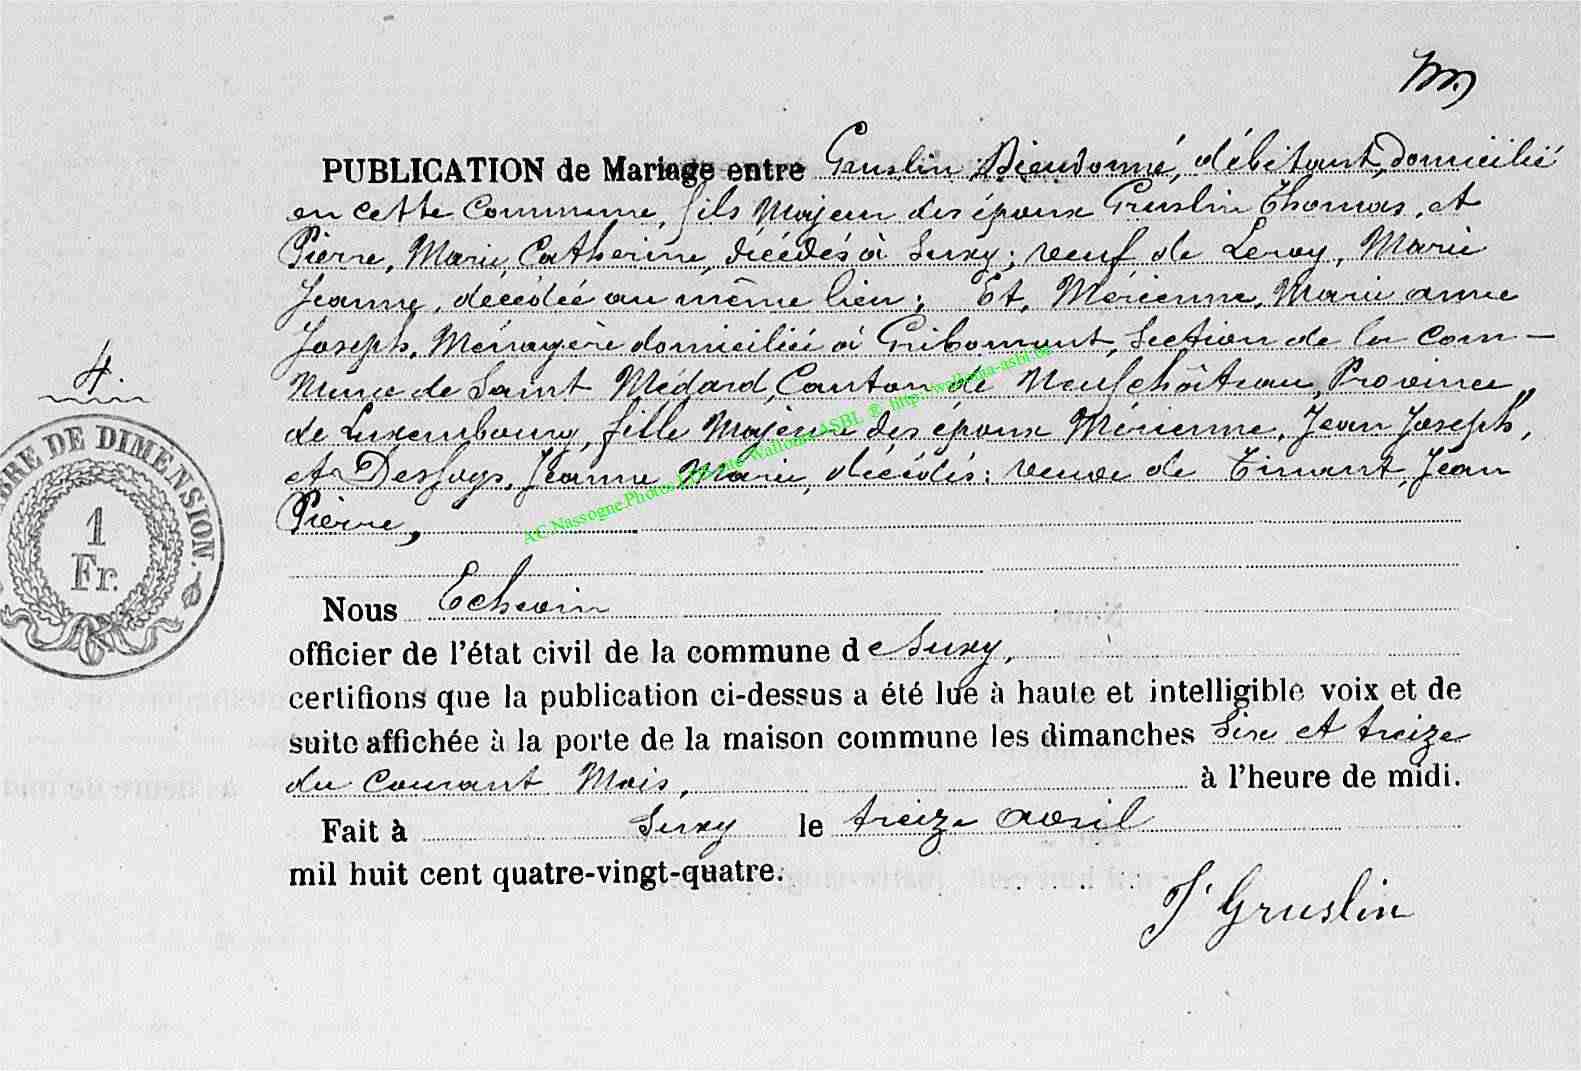 PUBLICATION de Mariage entre Gruslin Dieudonné, débitant, domicilié
en cette Commune, fils Majeur des époux Gruslin Thomas, et
Pierre, Marie, Catherine, décédés à Suxy; veuf de Leroy, Marie
Jeanne, décédée au même lieu; Et, Mérienne, Marie anne
Joseph, Ménagère domiciliée à Gribomont, Section de la Com-
mune de Saint Médard, Canton de Neufchâteau, Province
de Luxembourg, fille Majeure des époux Mérienne, Jean Joseph,
et Jeanne Marie, décédés: veuve de Timant, Jean
Pierre,
AC Nassogne Photos ASBL ® http://wallonia-asbl.be
4.
TIMBRE DE DIMENSION.
1
Fr.
Nous Echevin
officier de l'état civil de la commune de Suxy,
certifions que la publication ci-dessus a été lue à haute et intelligible voix et de
suite affichée à la porte de la maison commune les dimanches Six et treize
du Courant Mois, à l'heure de midi.
Fait à Suxy le treize avril
mil huit cent quatre-vingt-quatre.
J Gruslin